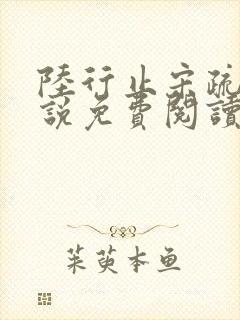 陸行止宋疏
說免費閱讀
茱萸本鱼